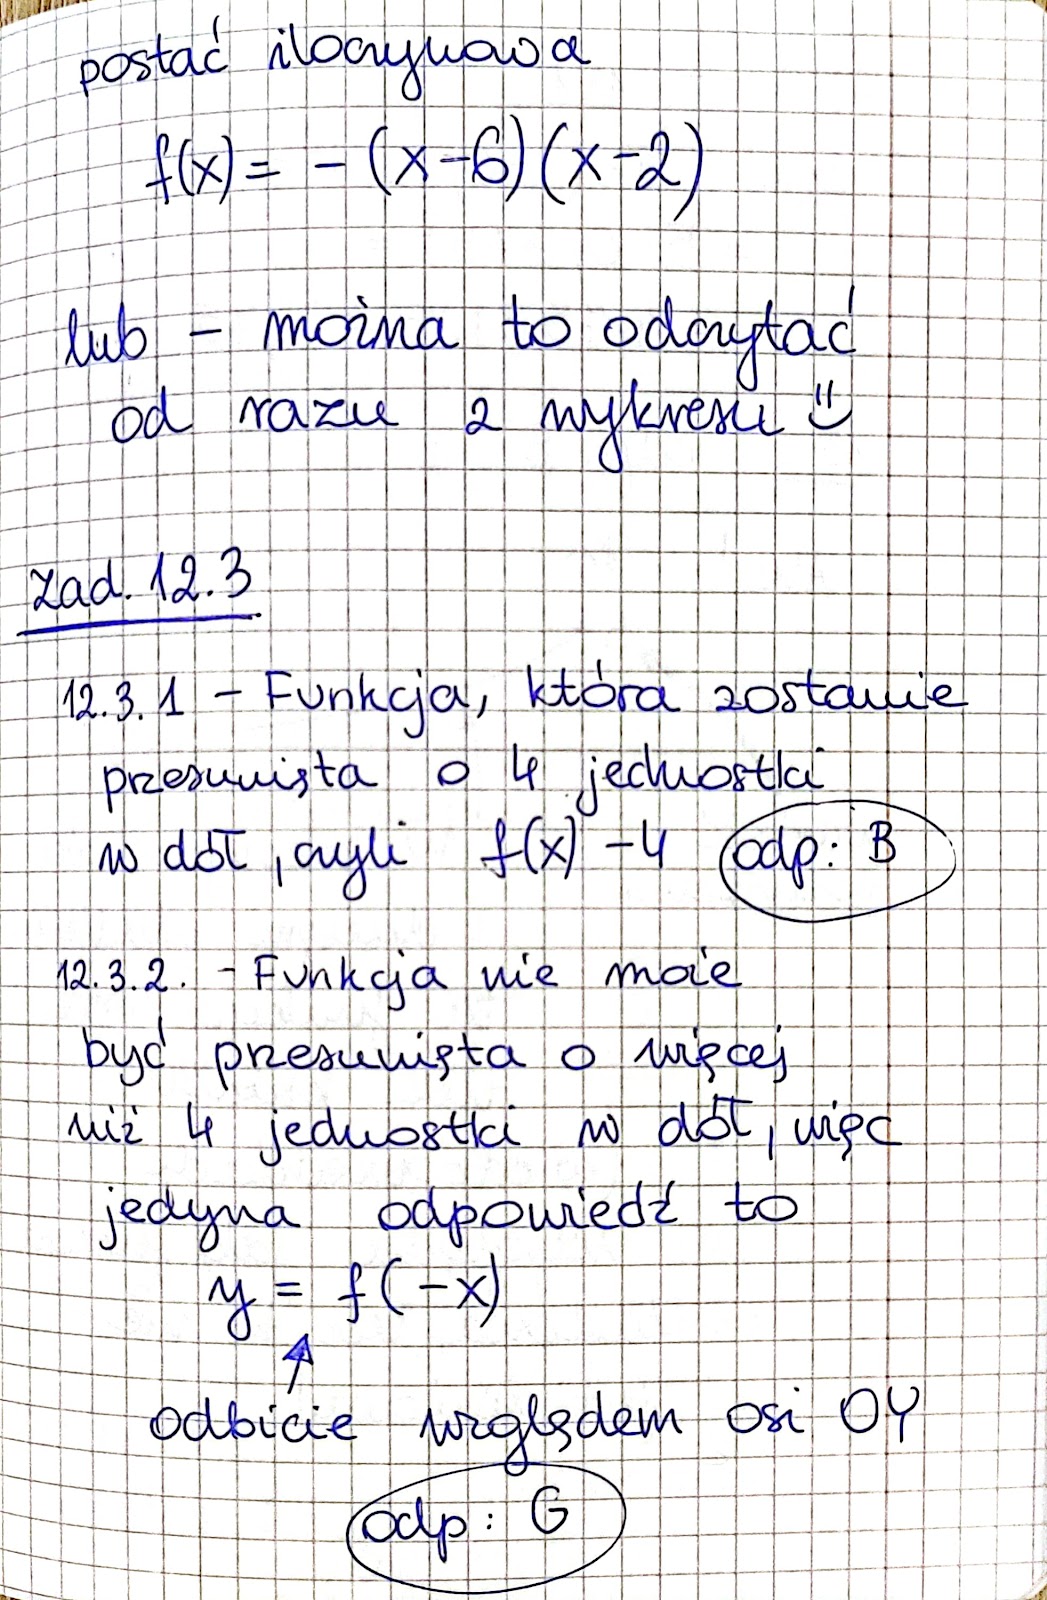 postać iloczynowa
f(x) = - (x-6)(x-2)
lub - można to odczytać
od razu z wykresu
zad. 12.3
12.3.1 - Funkcja, która zostanie
przesunięta o 4 jednostki
w dół, czyli f(x) -4 odp: B
12.3.2. - Funkcja nie może
być przesunięta o więcej
niż 4 jednostki w dół, więc
jedyna odpowiedź to
y = f(-x)
odbicie względem osi OY
odp: G